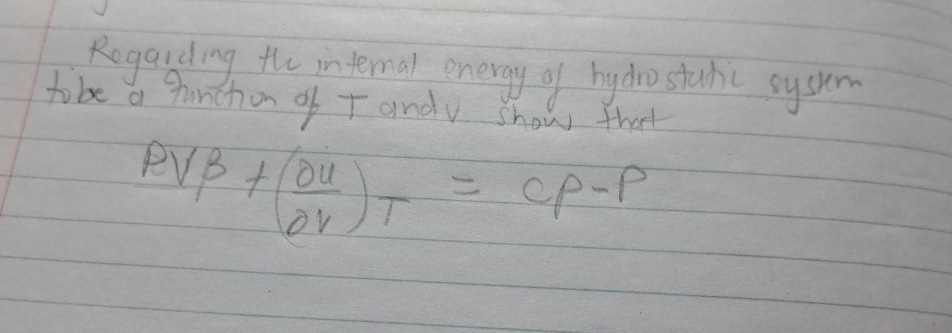 Regarding the internal energy of hydrostatic system
to be a function of T and V show that
PVβ + (∂U/∂V)_T = CP - P